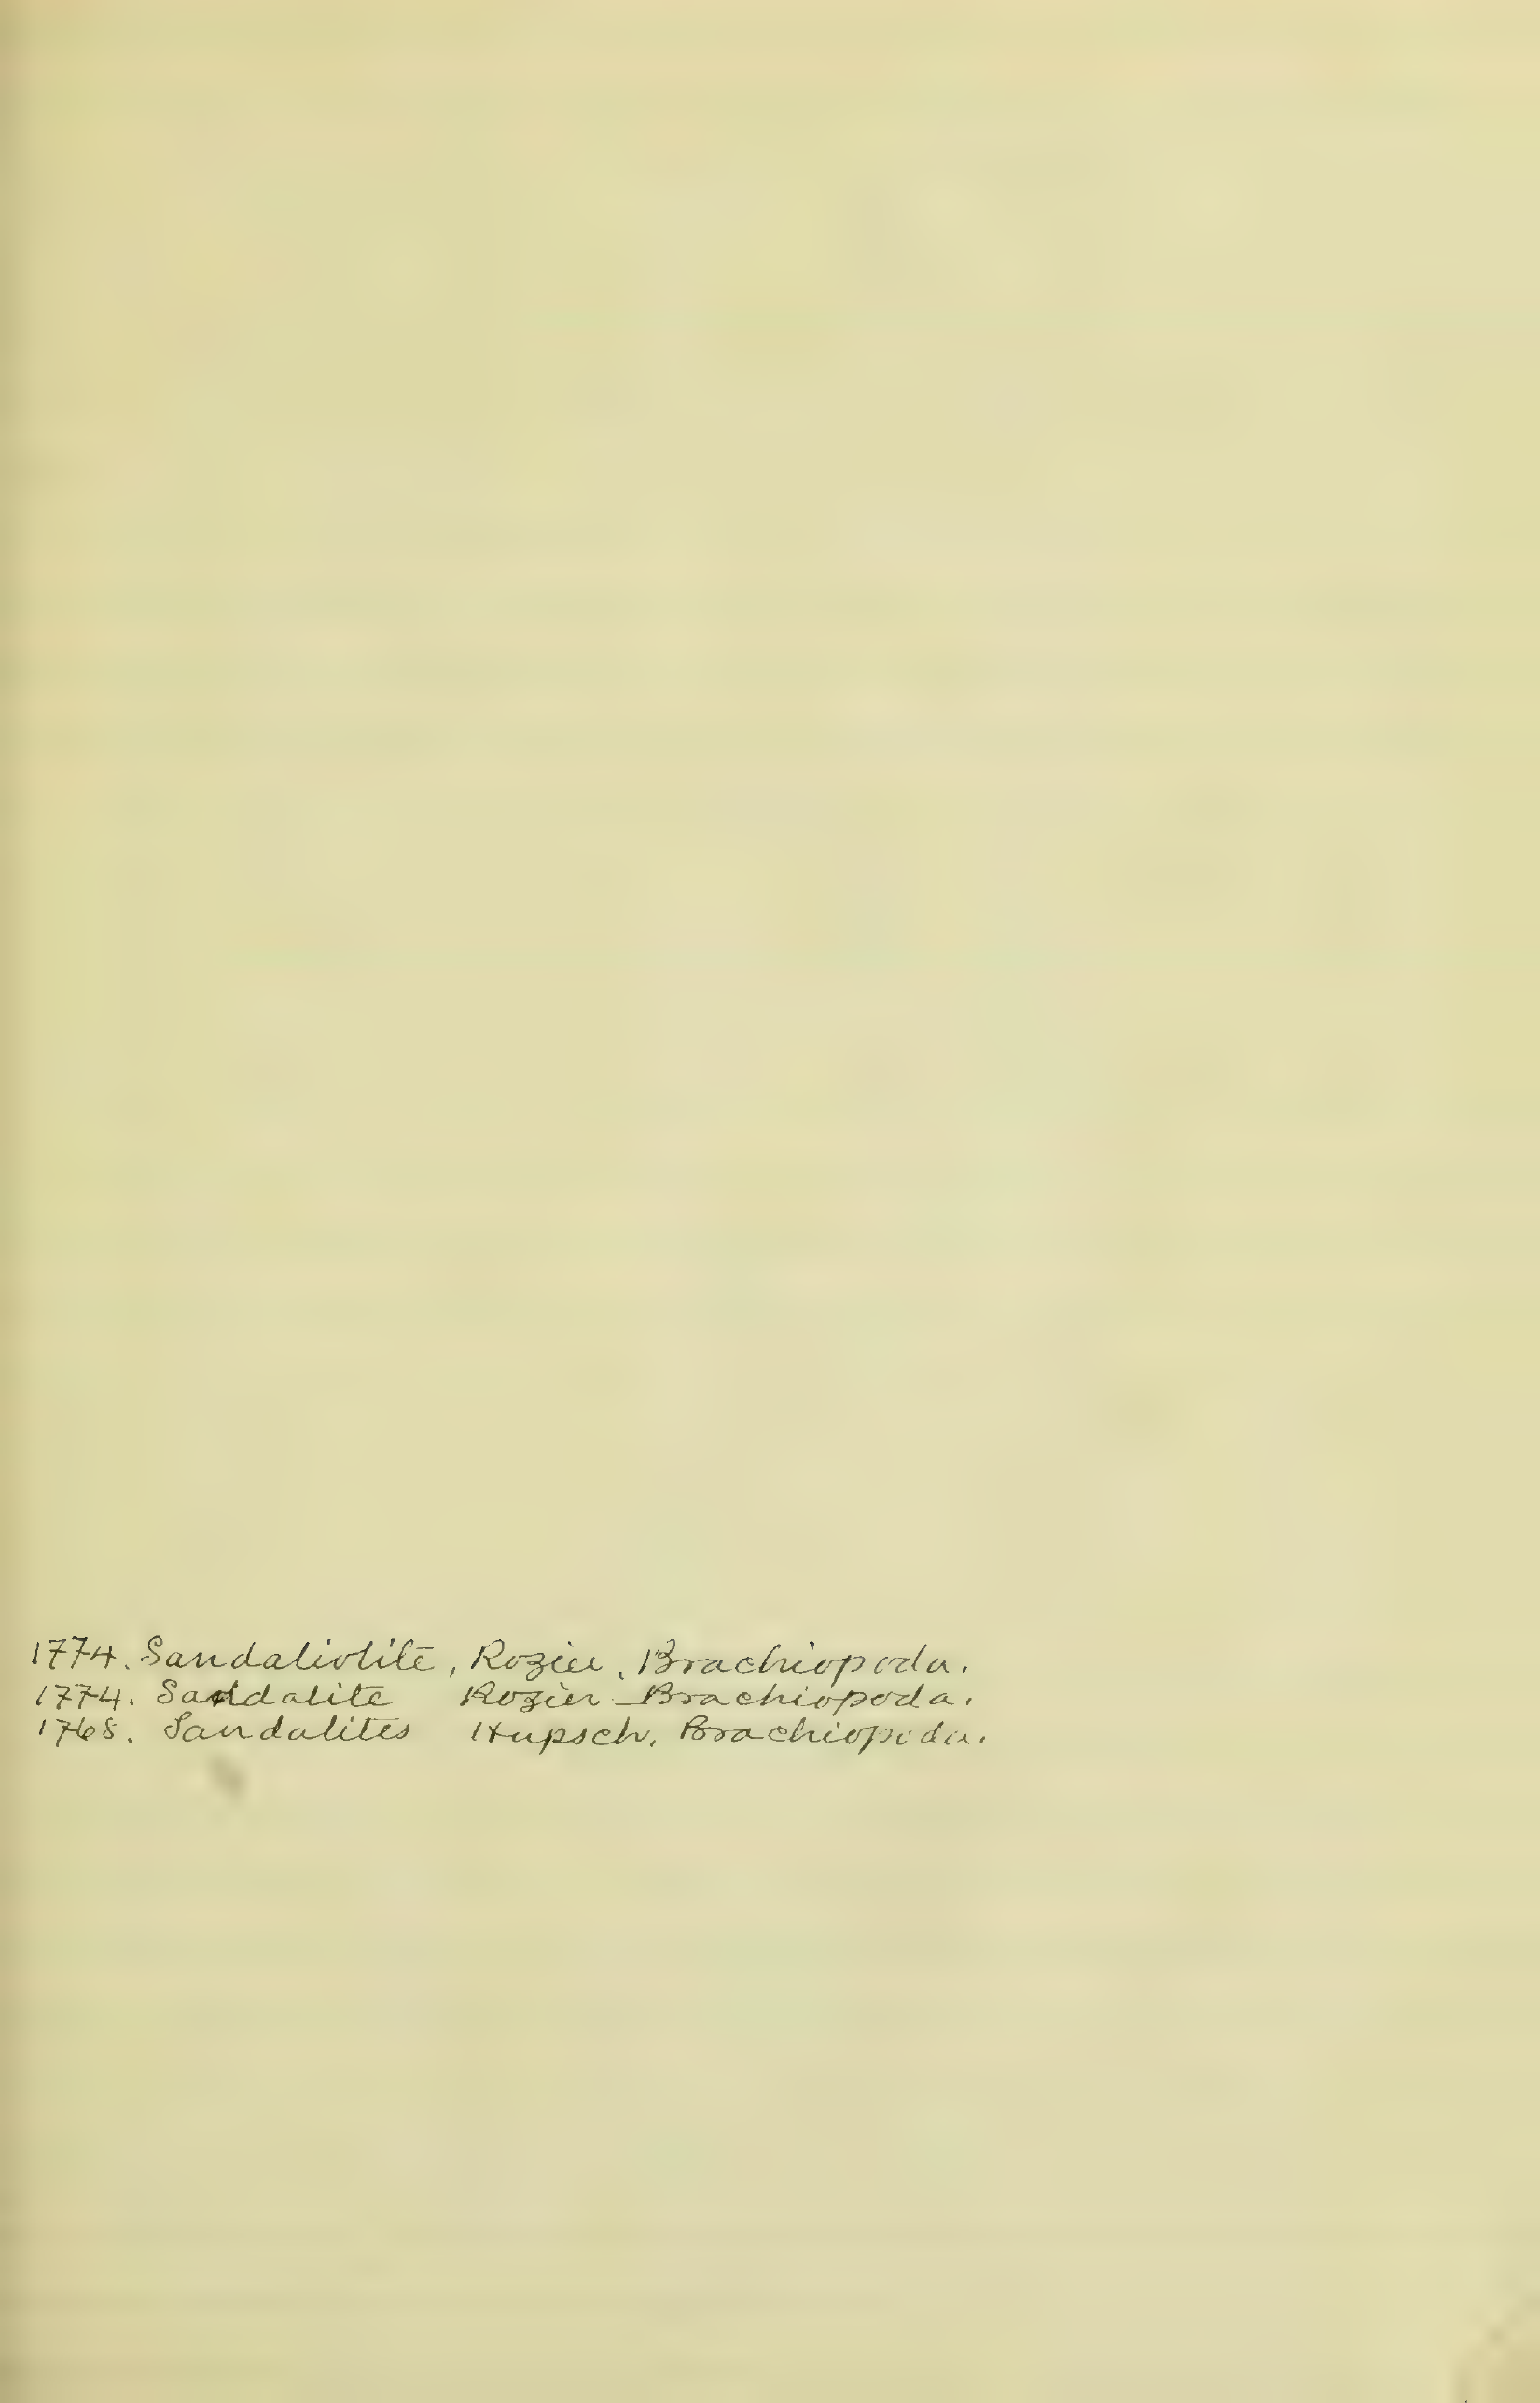 1774. Sandaliolite, Rozier, Brachiopoda.
1774. Sandalite Rozier - Brachiopoda.
1768. Sandalites Hupsch, Brachiopoda.